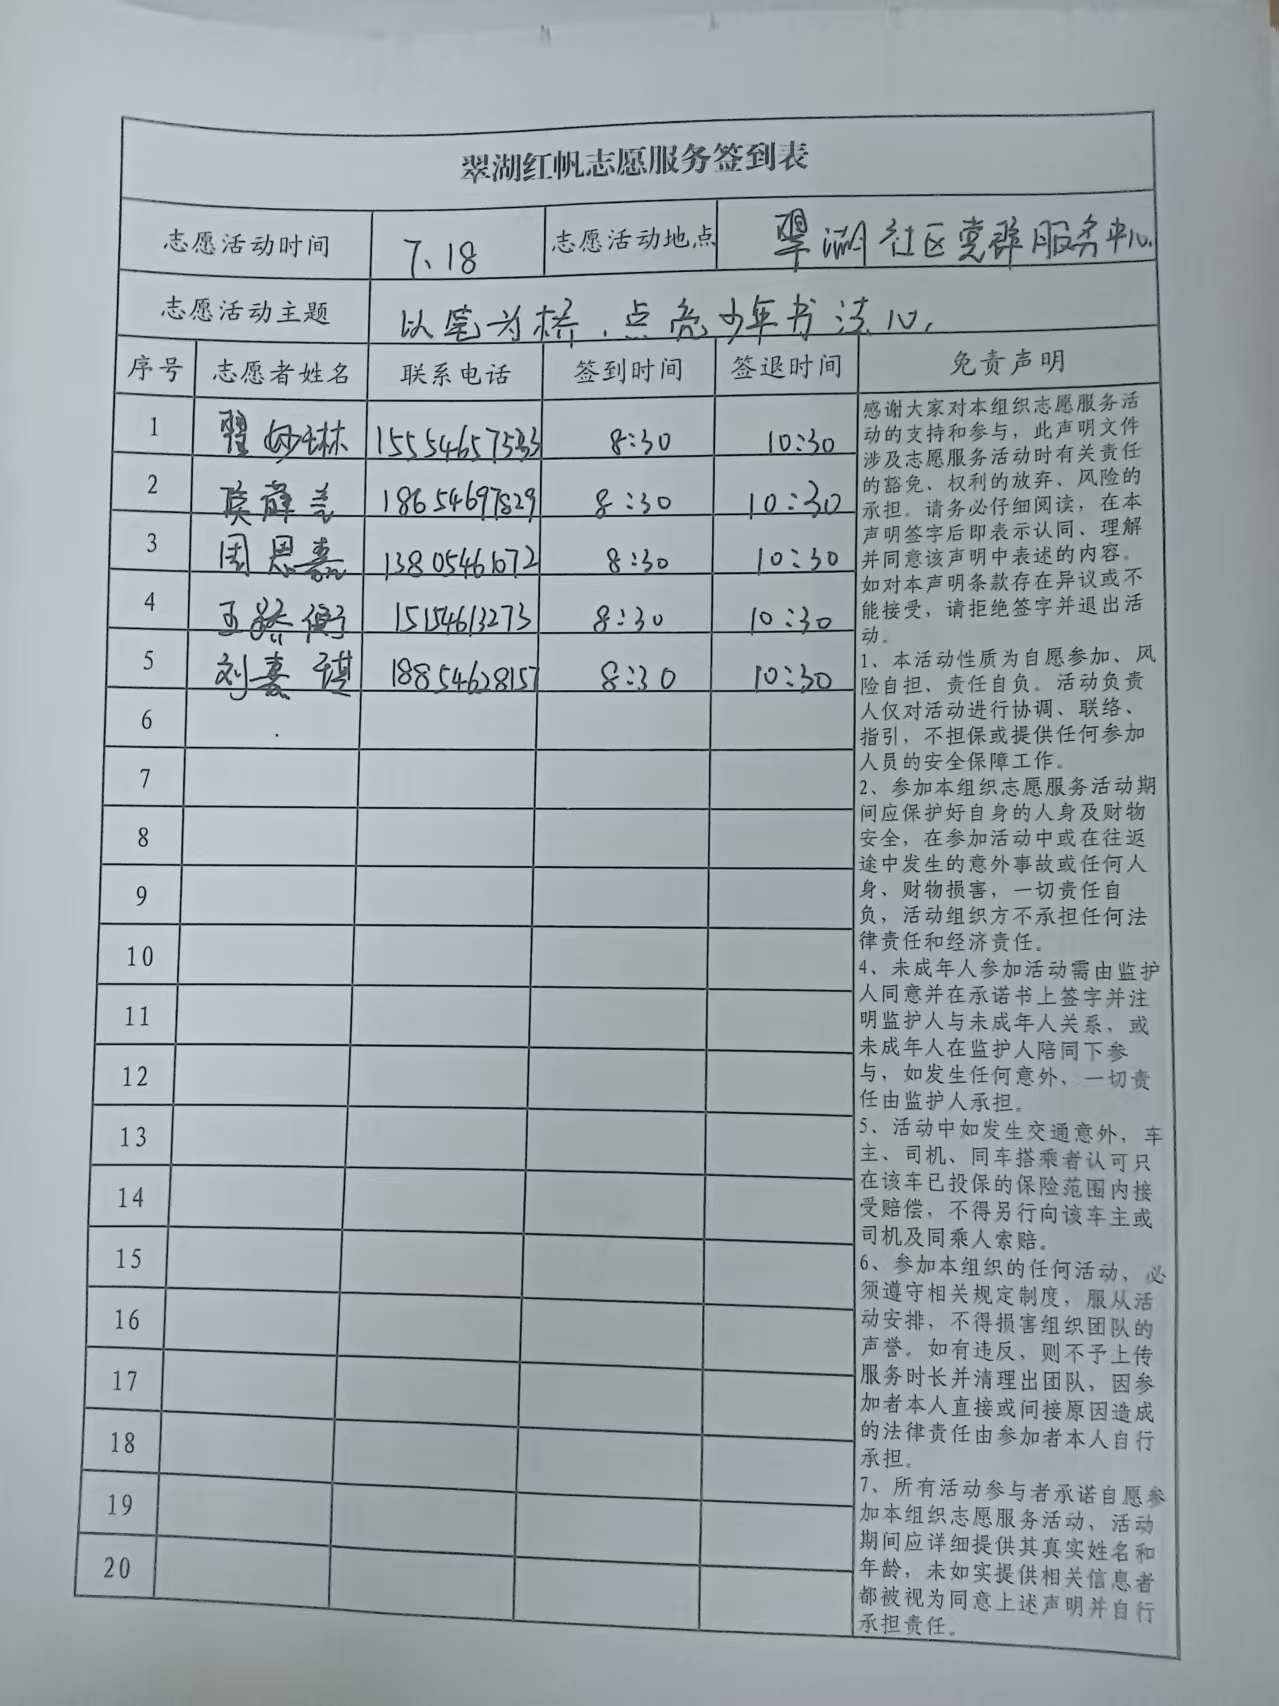 翠湖红帆志愿服务签到表
志愿活动时间 7.18 志愿活动地点 翠湖社区党群服务中心.
志愿活动主题 以笔为桥.点亮少年书法心.
序号 志愿者姓名 联系电话 签到时间 签退时间 免责声明
1 翟妙琳 15554657533 8:30 10:30
2 18654697829 8:30 10:30
3 周恩嘉 13805461072 8:30 10:30
4 王 15154613273 8:30 10:30
5 刘嘉琪 18854628157 8:30 10:30
6
7
8
9
10
11
12
13
14
15
16
17
18
19
20
感谢大家对本组织志愿服务活
动的支持和参与，此声明文件
涉及志愿服务活动时有关责任
的豁免、权利的放弃、风险的
承担。请务必仔细阅读，在本
声明签字后即表示认同、理解
并同意该声明中表述的内容。
如对本声明条款存在异议或不
能接受，请拒绝签字并退出活
动。
1、本活动性质为自愿参加、风
险自担、责任自负。活动负责
人仅对活动进行协调、联络、
指引，不担保或提供任何参加
人员的安全保障工作。
2、参加本组织志愿服务活动期
间应保护好自身的人身及财物
安全，在参加活动中或在往返
途中发生的意外事故或任何人
身、财物损害，一切责任自
负，活动组织方不承担任何法
律责任和经济责任。
4、未成年人参加活动需由监护
人同意并在承诺书上签字并注
明监护人与未成年人关系，或
未成年人在监护人陪同下参
与，如发生任何意外，一切责
任由监护人承担。
5、活动中如发生交通意外，车
主、司机、同车搭乘者认可只
在该车已投保的保险范围内接
受赔偿，不得另行向该车主或
司机及同乘人索赔。
6、参加本组织的任何活动、必
须遵守相关规定制度，服从活
动安排，不得损害组织团队的
声誉。如有违反，则不予上传
服务时长并清理出团队，因参
加者本人直接或间接原因造成
的法律责任由参加者本人自行
承担。
7、所有活动参与者承诺自愿参
加本组织志愿服务活动、活动
期间应详细提供其真实姓名和
年龄，未如实提供相关信息者
都被视为同意上述声明并自行
承担责任。